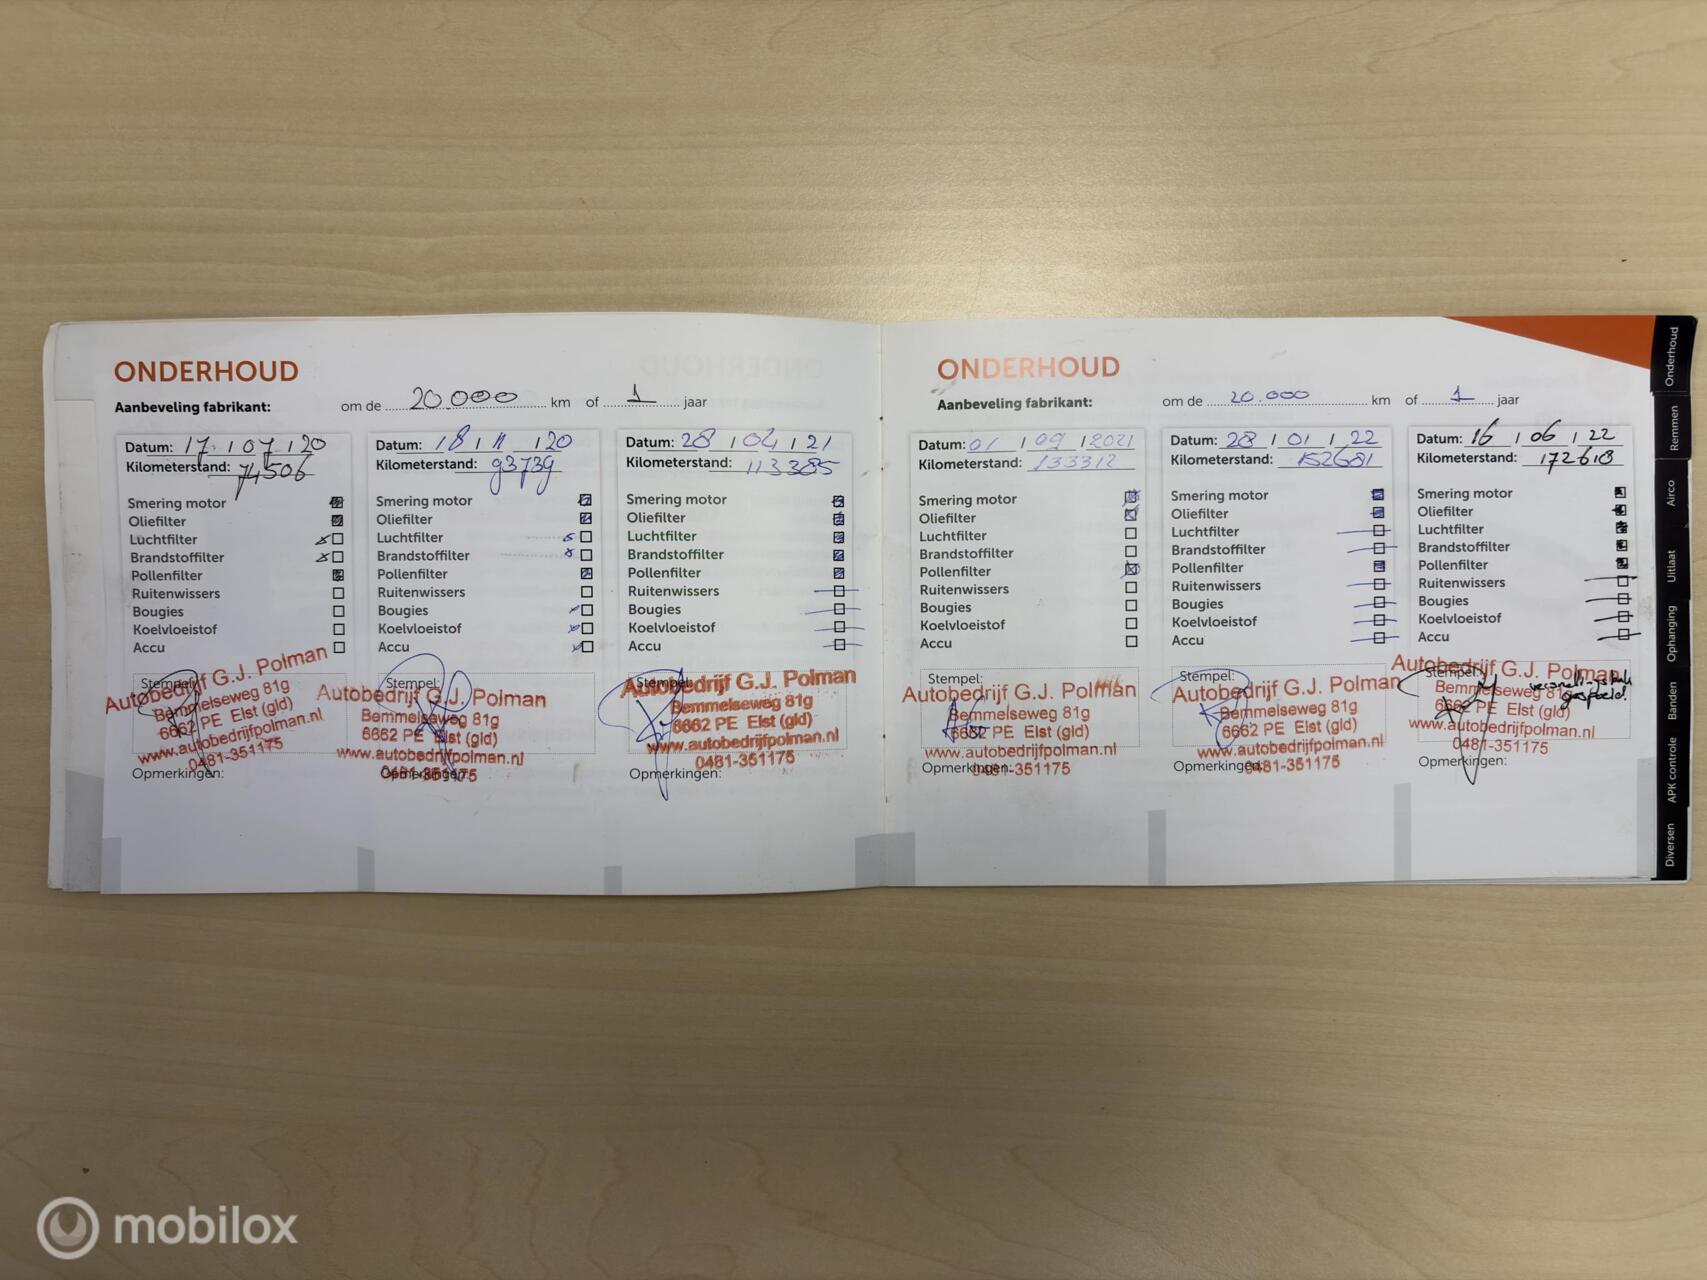 ONDERHOUD
Aanbeveling fabrikant: om de 20.000 km of 1 jaar
Datum: 17 / 07 / 20
Kilometerstand: 74506
Smering motor
Oliefilter
Luchtfilter
Brandstoffilter
Pollenfilter
Ruitenwissers
Bougies
Koelvloeistof
Accu
Stempel:
Autobedrijf G.J. Polman
Bemmelseweg 81g
6662 PE Elst (gld)
www.autobedrijfpolman.nl
0481-351175
Opmerkingen:
Datum: 18 / 11 / 20
Kilometerstand: 93739
Smering motor
Oliefilter
Luchtfilter
Brandstoffilter
Pollenfilter
Ruitenwissers
Bougies
Koelvloeistof
Accu
Stempel:
Autobedrijf G.J. Polman
Bemmelseweg 81g
6662 PE Elst (gld)
www.autobedrijfpolman.nl
0481-351175
Opmerkingen:
Datum: 28 / 04 / 21
Kilometerstand: 113385
Smering motor
Oliefilter
Luchtfilter
Brandstoffilter
Pollenfilter
Ruitenwissers
Bougies
Koelvloeistof
Accu
Stempel:
Autobedrijf G.J. Polman
Bemmelseweg 81g
6662 PE Elst (gld)
www.autobedrijfpolman.nl
0481-351175
Opmerkingen:
ONDERHOUD
Aanbeveling fabrikant: om de 20.000 km of 1 jaar
Datum: 01 / 09 / 2021
Kilometerstand: 133312
Smering motor
Oliefilter
Luchtfilter
Brandstoffilter
Pollenfilter
Ruitenwissers
Bougies
Koelvloeistof
Accu
Stempel:
Autobedrijf G.J. Polman
Bemmelseweg 81g
6662 PE Elst (gld)
www.autobedrijfpolman.nl
0481-351175
Opmerkingen:
Datum: 28 / 01 / 22
Kilometerstand: 152681
Smering motor
Oliefilter
Luchtfilter
Brandstoffilter
Pollenfilter
Ruitenwissers
Bougies
Koelvloeistof
Accu
Stempel:
Autobedrijf G.J. Polman
Bemmelseweg 81g
6662 PE Elst (gld)
www.autobedrijfpolman.nl
0481-351175
Opmerkingen:
Datum: 16 / 06 / 22
Kilometerstand: 172618
Smering motor
Oliefilter
Luchtfilter
Brandstoffilter
Pollenfilter
Ruitenwissers
Bougies
Koelvloeistof
Accu
Stempel:
Autobedrijf G.J. Polman
versnellingsbak
gespoeld.
Bemmelseweg 81g
6662 PE Elst (gld)
www.autobedrijfpolman.nl
0481-351175
Opmerkingen:
Onderhoud
Remmen
Airco
Uitlaat
Ophanging
Banden
APK controle
Diversen
mobilox